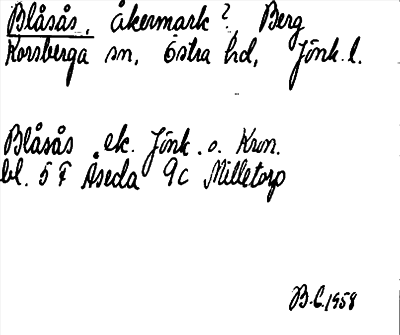 Blåsås, åkermark?, Berg
Korsberga sn, Östra hd, Jönk. l.
Blåsås ek. Jönk. o. Kron.
bl. 5 F Åseda 9c Milletorp
B.E. 1958